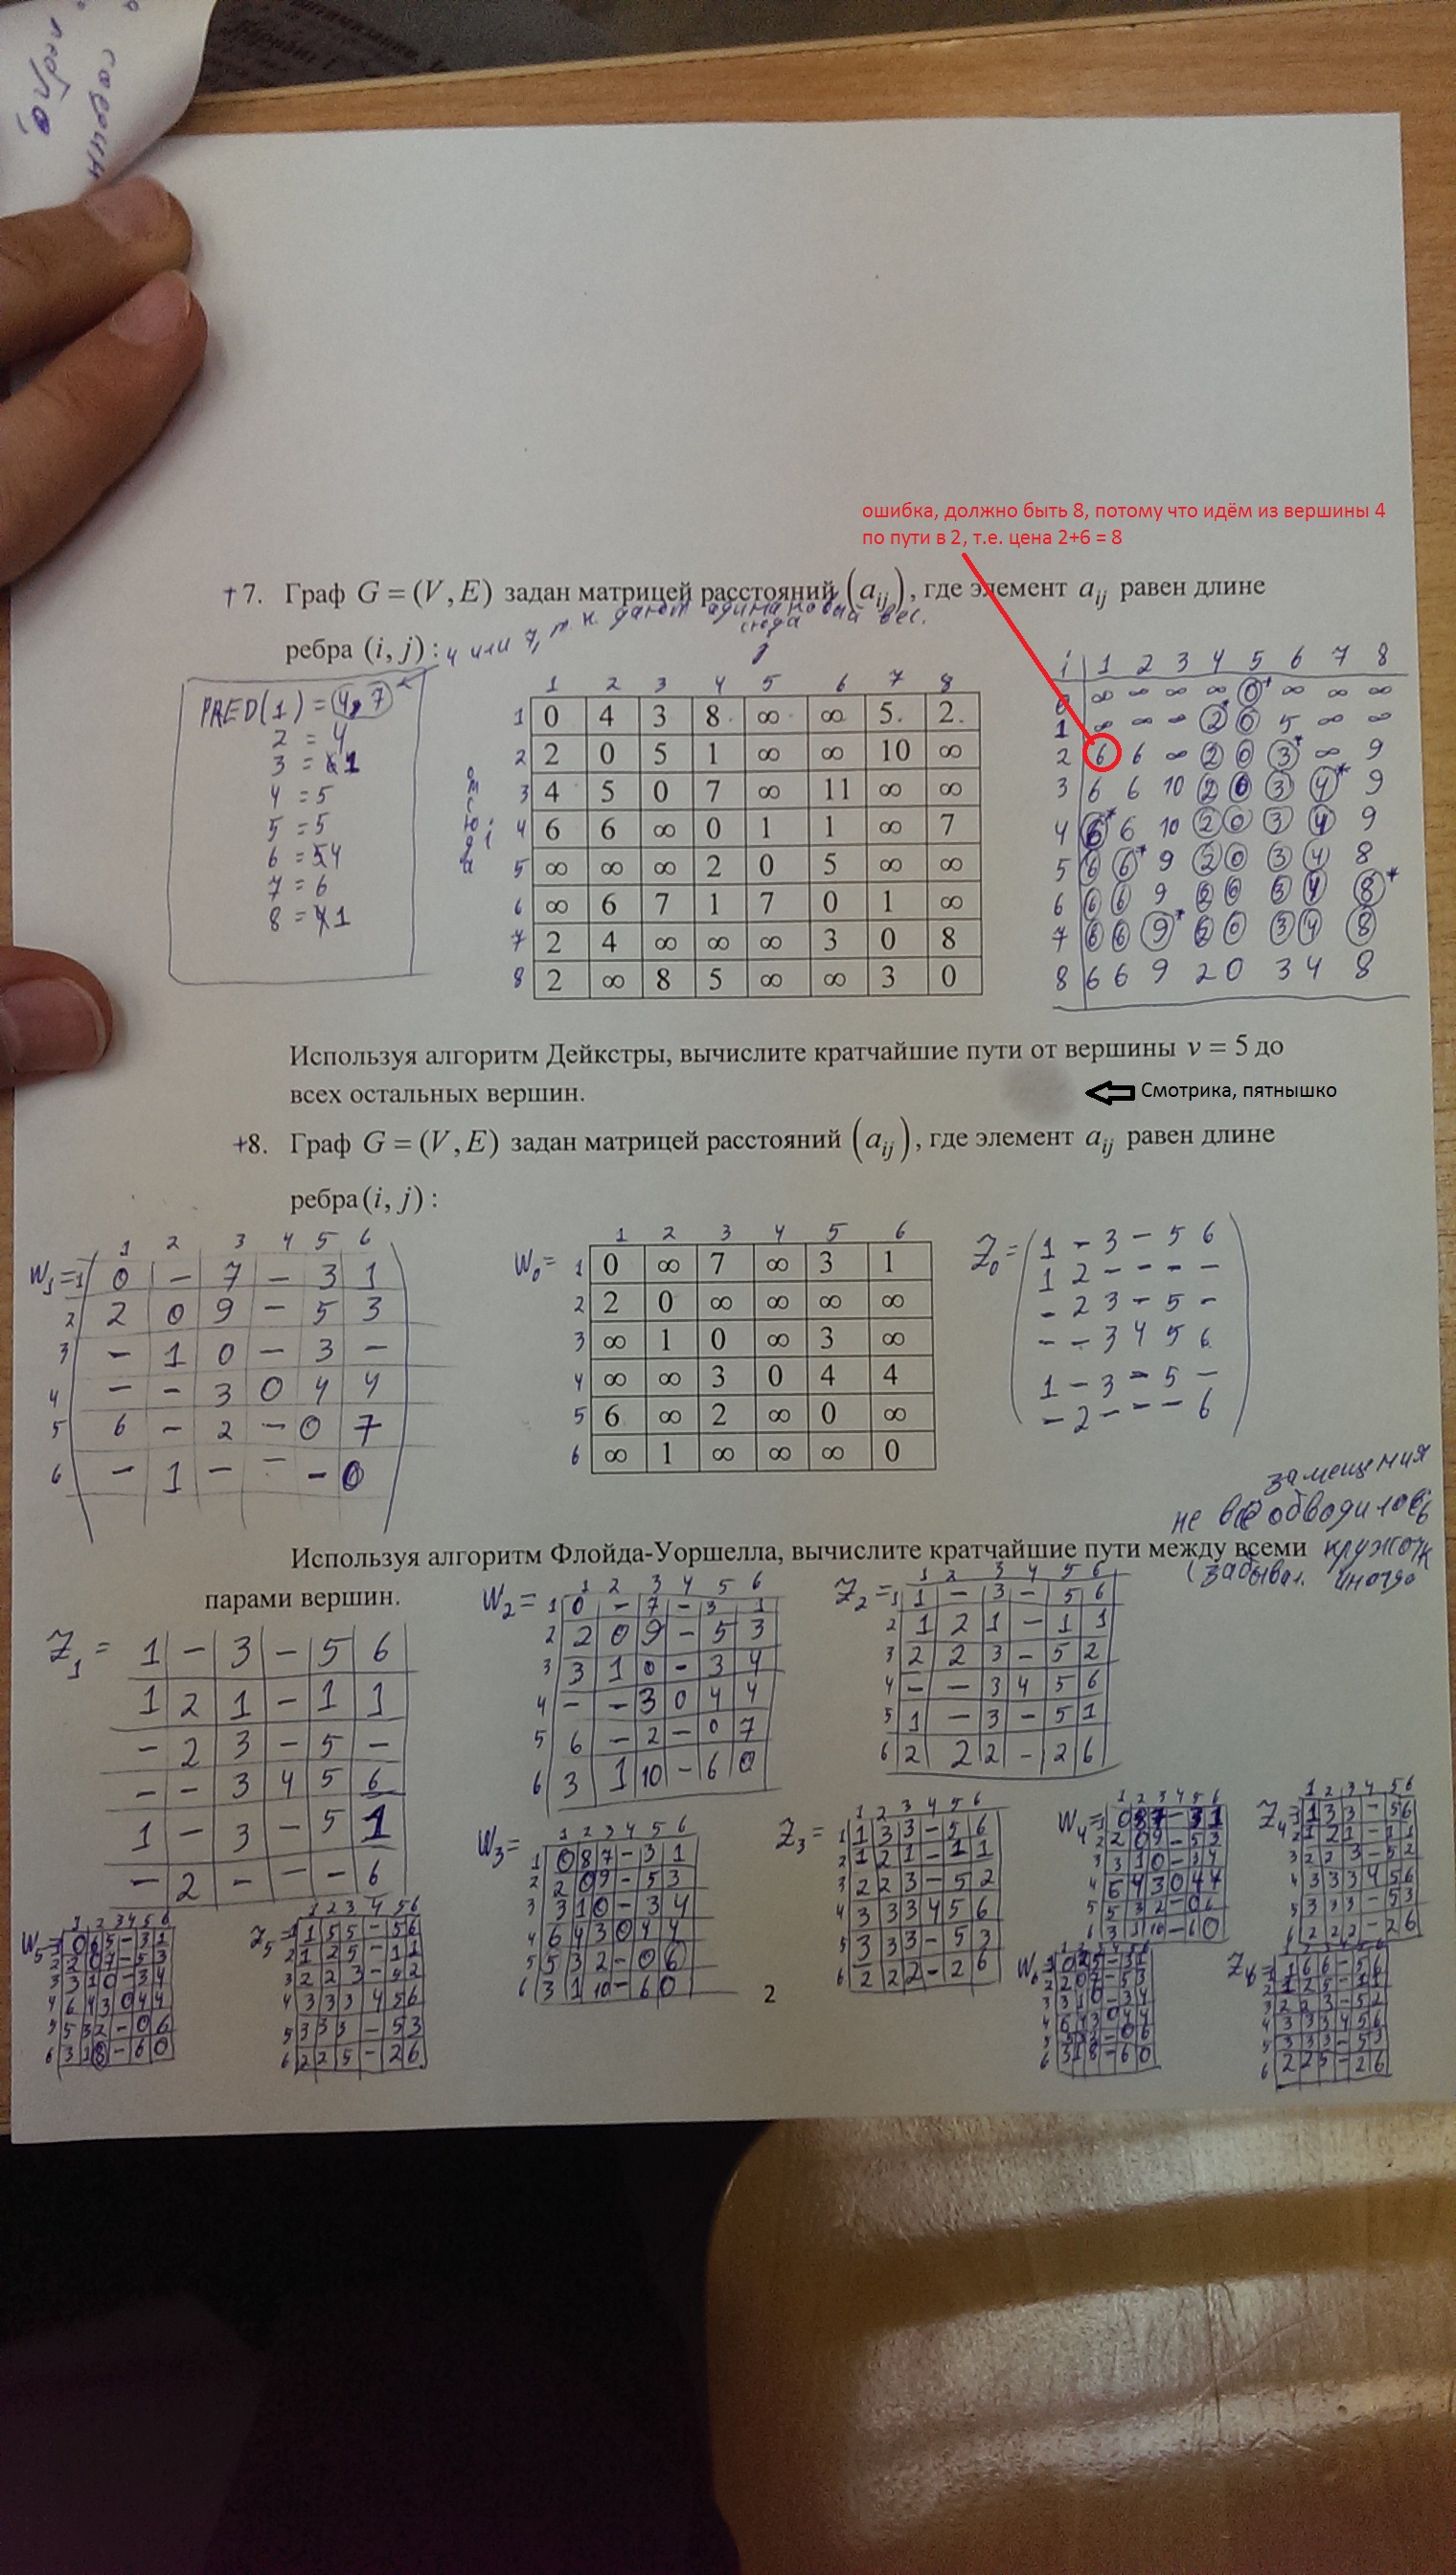 ошибка, должно быть 8, потому что идём из вершины 4
по пути в 2, т.е. цена 2+6 = 8
+7. Граф G = (V, E) задан матрицей расстояний (a_ij), где элемент a_ij равен длине
ребра (i, j) : 4 или 7, т.к. дают одинаковый вес.
сюда
j
PRED(1) = 4, 7
2 = 4
3 = 1
4 = 5
5 = 5
6 = 4
7 = 6
8 = 1
1 2 3 4 5 6 7 8
1 0 4 3 8 ∞ ∞ 5 2
2 2 0 5 1 ∞ ∞ 10 ∞
3 4 5 0 7 ∞ 11 ∞ ∞
4 6 6 ∞ 0 1 1 ∞ 7
5 ∞ ∞ ∞ 2 0 5 ∞ ∞
6 ∞ 6 7 1 7 0 1 ∞
7 2 4 ∞ ∞ ∞ 3 0 8
8 2 ∞ 8 5 ∞ ∞ 3 0
i 1 2 3 4 5 6 7 8
0 ∞ ∞ ∞ ∞ 0* ∞ ∞ ∞
1 ∞ ∞ ∞ 2* 0 5 ∞ ∞
2 6 6 ∞ 2 0 3* ∞ 9
3 6 6 10 2 0 3 4* 9
4 6* 6 10 2 0 3 4 9
5 6 6* 9 2 0 3 4 8
6 6 6 9 2 0 3 4 8*
7 6 6 9* 2 0 3 4 8
8 6 6 9 2 0 3 4 8
Используя алгоритм Дейкстры, вычислите кратчайшие пути от вершины v = 5 до
всех остальных вершин.
Смотрика, пятнышко
+8. Граф G = (V, E) задан матрицей расстояний (a_ij), где элемент a_ij равен длине
ребра (i, j) :
W1 =
1 2 3 4 5 6
1 0 – 7 – 3 1
2 2 0 9 – 5 3
3 – 1 0 – 3 –
4 – – 3 0 4 4
5 6 – 2 – 0 7
6 – 1 – – – 0
W0 =
1 2 3 4 5 6
1 0 ∞ 7 ∞ 3 1
2 2 0 ∞ ∞ ∞ ∞
3 ∞ 1 0 ∞ 3 ∞
4 ∞ ∞ 3 0 4 4
5 6 ∞ 2 ∞ 0 ∞
6 ∞ 1 ∞ ∞ ∞ 0
Z0 =
1 – 3 – 5 6
1 2 – – – –
– 2 3 – 5 –
– – 3 4 5 6
1 – 3 – 5 –
– 2 – – – 6
замещения
не все обводилось
Используя алгоритм Флойда-Уоршелла, вычислите кратчайшие пути между всеми
парами вершин.
(забывал иногда
Z1 =
1 – 3 – 5 6
1 2 1 – 1 1
– 2 3 – 5 –
– – 3 4 5 6
1 – 3 – 5 1
– 2 – – – 6
W2 =
1 2 3 4 5 6
1 0 – 7 – 3 1
2 2 0 9 – 5 3
3 3 1 0 – 3 4
4 – – 3 0 4 4
5 6 – 2 – 0 7
6 3 1 10 – 6 0
Z2 =
1 2 3 4 5 6
1 1 – 3 – 5 6
2 1 2 1 – 1 1
3 2 2 3 – 5 2
4 – – 3 4 5 6
5 1 – 3 – 5 1
6 2 2 2 – 2 6
W3 =
1 2 3 4 5 6
1 0 8 7 – 3 1
2 2 0 9 – 5 3
3 3 1 0 – 3 4
4 6 4 3 0 4 4
5 5 3 2 – 0 6
6 3 1 10 – 6 0
Z3 =
1 2 3 4 5 6
1 1 3 3 – 5 6
2 1 2 1 – 1 1
3 2 2 3 – 5 2
4 3 3 3 4 5 6
5 3 3 3 – 5 3
6 2 2 2 – 2 6
W4 =
1 2 3 4 5 6
1 0 8 7 – 3 1
2 2 0 9 – 5 3
3 3 1 0 – 3 4
4 6 4 3 0 4 4
5 5 3 2 – 0 6
6 3 1 10 – 6 0
Z4 =
1 2 3 4 5 6
1 1 3 3 – 5 6
2 1 2 1 – 1 1
3 2 2 3 – 5 2
4 3 3 3 4 5 6
5 3 3 3 – 5 3
6 2 2 2 – 2 6
W5 =
1 2 3 4 5 6
1 0 6 5 – 3 1
2 2 0 7 – 5 3
3 3 1 0 – 3 4
4 6 4 3 0 4 4
5 5 3 2 – 0 6
6 3 1 8 – 6 0
Z5 =
1 2 3 4 5 6
1 1 5 5 – 5 6
2 1 2 5 – 1 1
3 2 2 3 – 5 2
4 3 3 3 4 5 6
5 3 3 3 – 5 3
6 2 2 5 – 2 6
2
W6
1 0 2 5 – 3 1
2 2 0 7 – 5 3
3 3 1 0 – 3 4
4 6 4 3 0 4 4
5 5 3 2 – 0 6
6 3 1 8 – 6 0
Z6 =
2 1 2 5 – 1 1
3 2 2 3 – 5 2
4 3 3 3 4 5 6
5 3 3 3 – 5 3
6 2 2 5 – 2 6